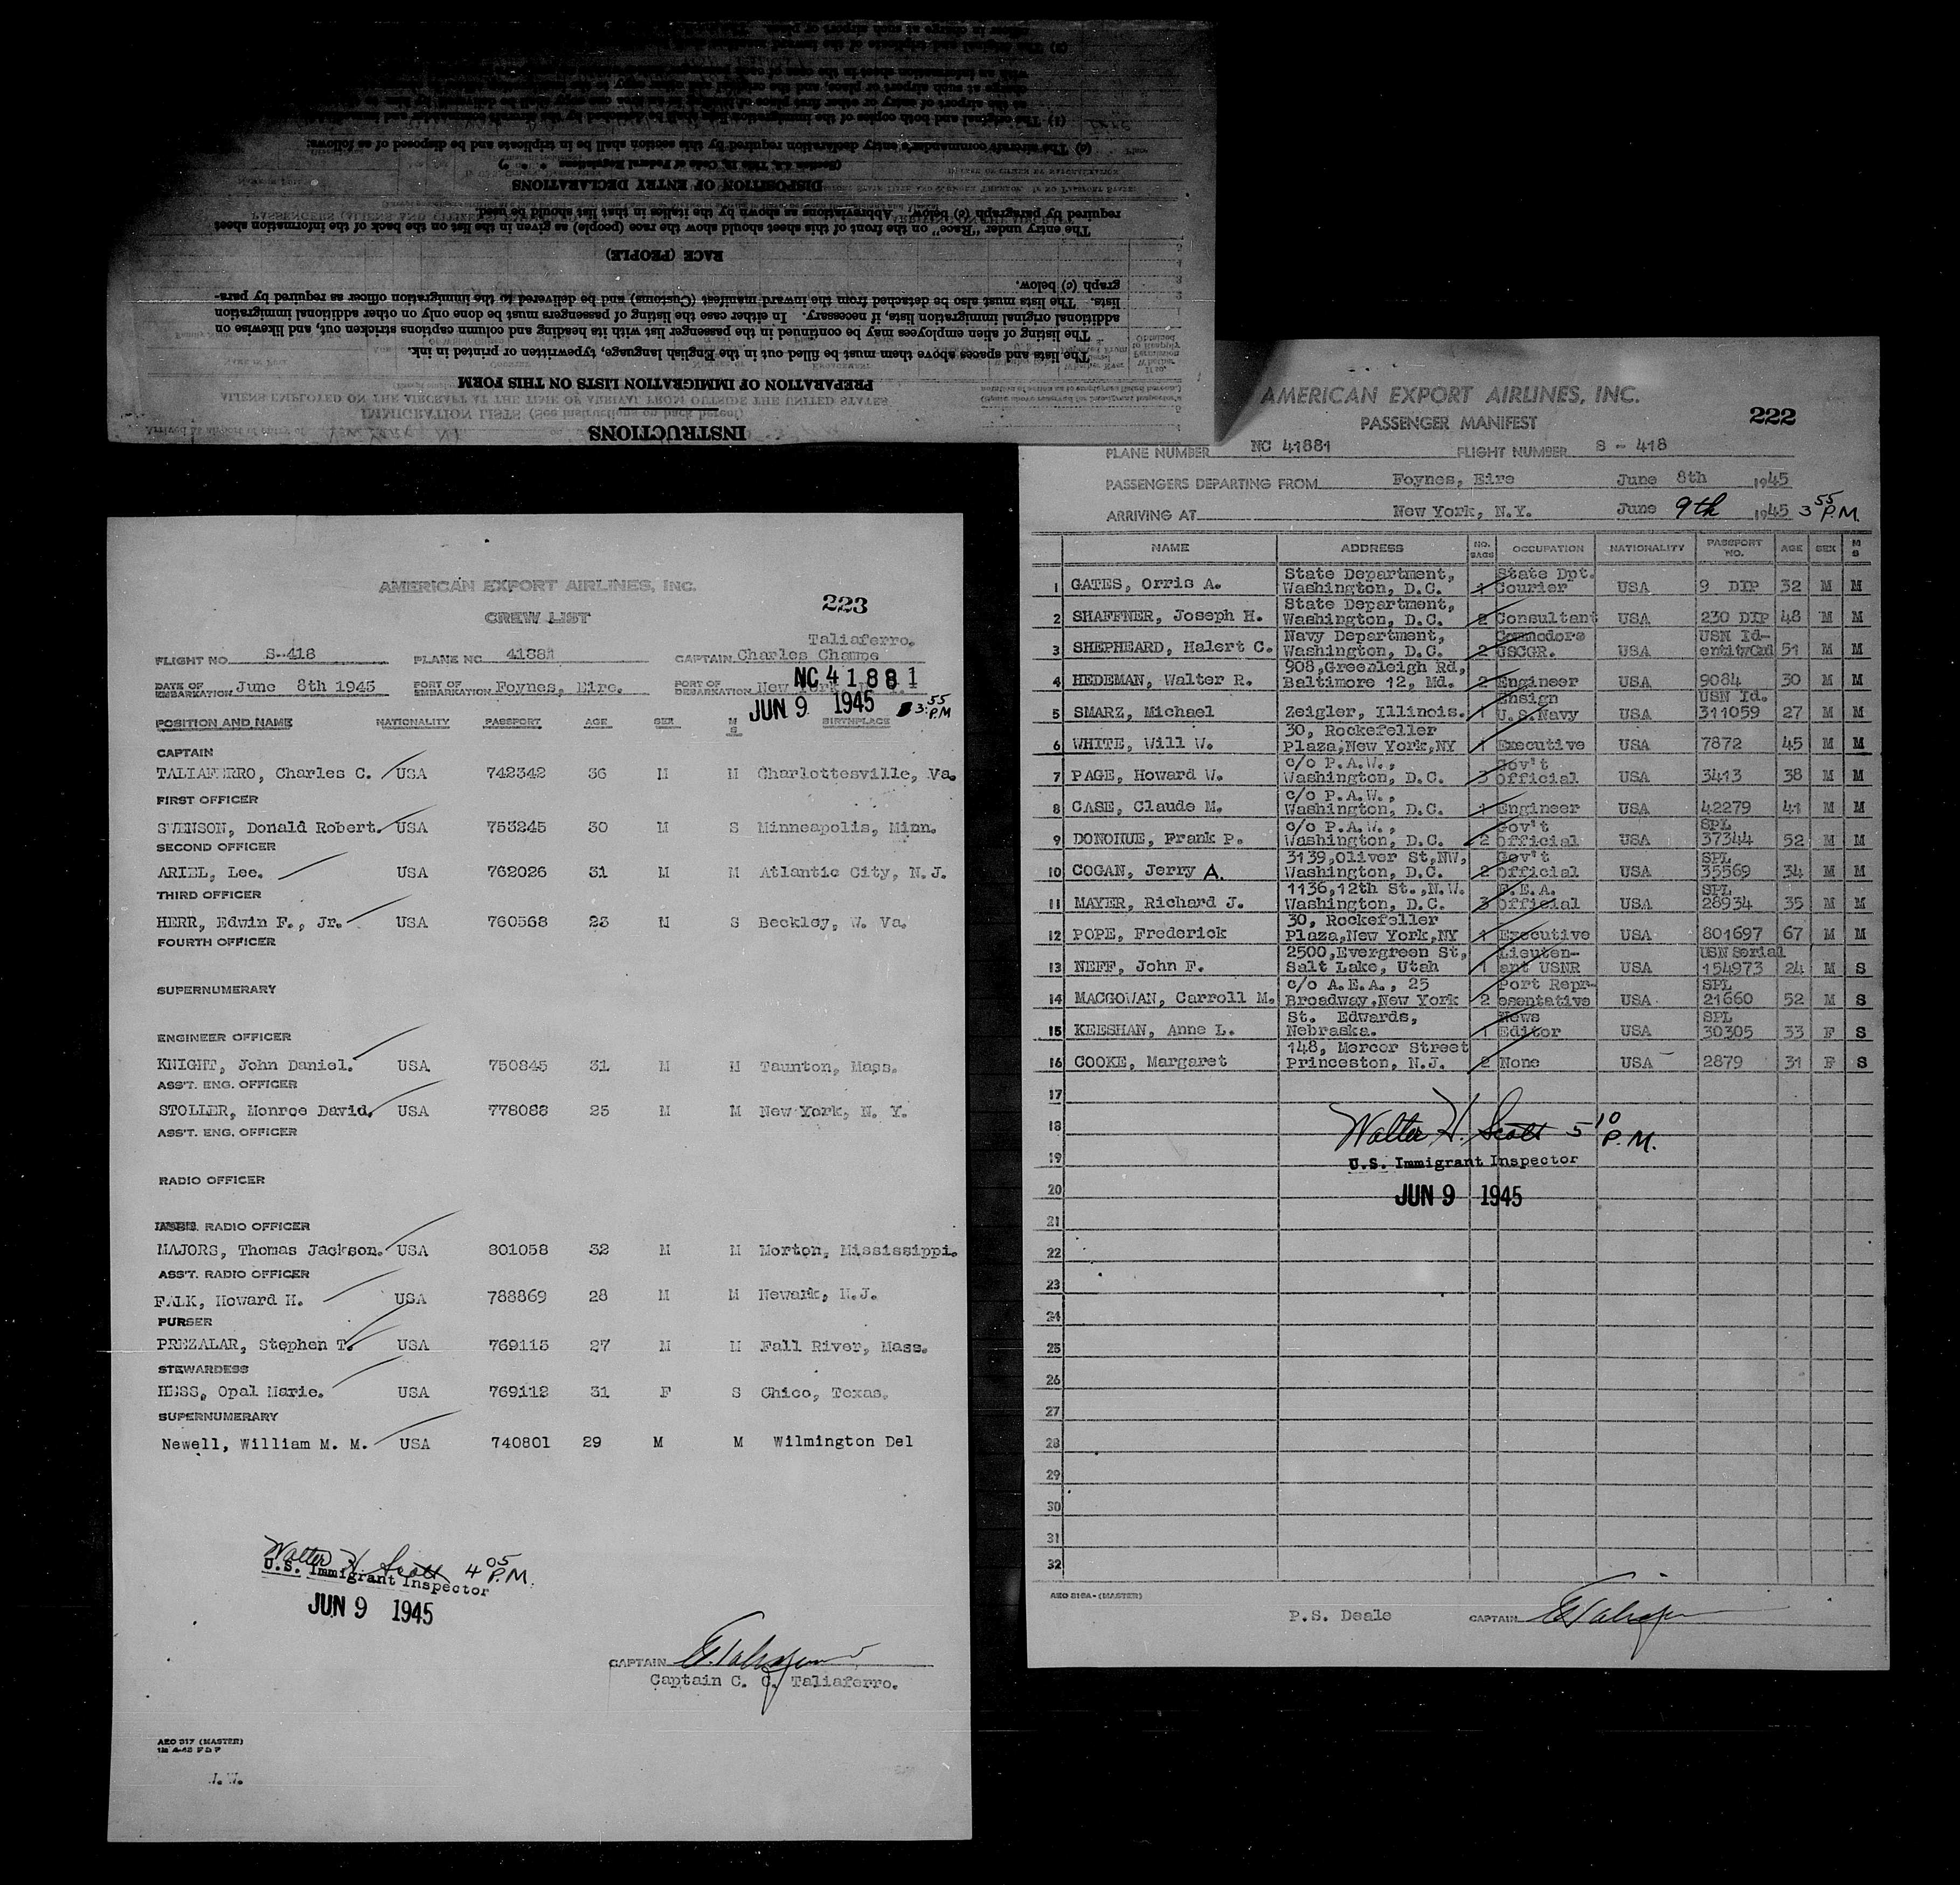 INSTRUCTIONS
PREPARATION OF IMMIGRATION LISTS ON THIS FORM
The lists and spaces above them must be filled out in the English language, typewritten or printed in ink.
The listing of alien employees may be continued in the passenger list with its heading and column captions stricken out, and likewise on
additional original immigration lists, if necessary. In either case the listing of passengers must be done only on other additional immigration
lists. The lists must also be detached from the inward manifest (Customs) and be delivered to the immigration officer as required by para-
graph (c) below.
RACE (PEOPLE)
The entry under "Race" on the front of this sheet should show the race (people) as given in the list on the back of the information sheet
required by paragraph (c) below. Abbreviations as shown by the italics in that list should be used.
DISPOSITION OF ENTRY DECLARATIONS
(c) The aircraft commander's entry declaration required by this section shall be in triplicate and be disposed of as follows:
AMERICAN EXPORT AIRLINES, INC.
CREW LIST
223
FLIGHT NO. S-418 PLANE NO. 41881 CAPTAIN Charles Champe Taliaferro.
DATE OF EMBARKATION June 8th 1945 PORT OF EMBARKATION Foynes, Eire. PORT OF DEBARKATION New York,
NC 41881
JUN 9 1945 3:55 P.M
POSITION AND NAME NATIONALITY PASSPORT AGE SEX M S BIRTHPLACE
CAPTAIN
TALIAFERRO, Charles C. USA 742342 36 M M Charlottesville, Va.
FIRST OFFICER
SWENSON, Donald Robert. USA 753245 30 M S Minneapolis, Minn.
SECOND OFFICER
ARIEL, Lee. USA 762026 31 M M Atlantic City, N.J.
THIRD OFFICER
HERR, Edwin F., Jr. USA 760568 23 M S Beckley, W. Va.
FOURTH OFFICER
SUPERNUMERARY
ENGINEER OFFICER
KNIGHT, John Daniel. USA 750845 31 M M Taunton, Mass.
ASS'T. ENG. OFFICER
STOLLER, Monroe David. USA 778088 25 M M New York, N. Y.
ASS'T. ENG. OFFICER
RADIO OFFICER
RADIO OFFICER
MAJORS, Thomas Jackson. USA 801058 32 M M Morton, Mississippi.
ASS'T. RADIO OFFICER
FALK, Howard H. USA 788869 28 M M Newark, N.J.
PURSER
PREZALAR, Stephen T. USA 769115 27 M M Fall River, Mass.
STEWARDESS
HESS, Opal Marie. USA 769112 31 F S Chico, Texas.
SUPERNUMERARY
Newell, William M. M. USA 740801 29 M M Wilmington Del
Walter H. Scott 4 05 P.M.
U.S. Immigrant Inspector
JUN 9 1945
CAPTAIN
Captain C. C. Taliaferro.
AEO 317 (MASTER)
AMERICAN EXPORT AIRLINES, INC.
PASSENGER MANIFEST
222
PLANE NUMBER NC 41881 FLIGHT NUMBER S - 418
PASSENGERS DEPARTING FROM Foynes, Eire June 8th 1945
ARRIVING AT New York, N.Y. June 9th 1945 3 55 P.M.
NAME ADDRESS NO. BAGS OCCUPATION NATIONALITY PASSPORT NO. AGE SEX M S
1 GATES, Orris A. State Department, Washington, D.C. 1 State Dpt. Courier USA 9 DIP 32 M M
2 SHAFFNER, Joseph H. State Department, Washington, D.C. 2 Consultant USA 230 DIP 48 M M
3 SHEPHEARD, Halert C. Navy Department, Washington, D.C. 2 Commodore USCGR. USA USN Id-entityCrd 51 M M
4 HEDEMAN, Walter R. 908, Greenleigh Rd, Baltimore 12, Md. 2 Engineer USA 9084 30 M M
5 SMARZ, Michael Zeigler, Illinois. 1 Ensign U.S.Navy USA USN Id. 311059 27 M M
6 WHITE, Will W. 30, Rockefeller Plaza,New York,NY 1 Executive USA 7872 45 M M
7 PAGE, Howard W. c/o P.A.W., Washington, D.C. 3 Gov't Official USA 3413 38 M M
8 CASE, Claude M. c/o P.A.W., Washington, D.C. 1 Engineer USA 42279 41 M M
9 DONOHUE, Frank P. c/o P.A.W., Washington, D.C. 2 Gov't Official USA SPL 37344 52 M M
10 COGAN, Jerry A. 3139,Oliver St,NW, Washington, D.C. 2 Gov't Official USA SPL 35569 34 M M
11 MAYER, Richard J. 1136,12th St.,N.W. Washington, D.C. 3 F.E.A. Official USA SPL 28934 35 M M
12 POPE, Frederick 30, Rockefeller Plaza,New York,NY 1 Executive USA 801697 67 M M
13 NEFF, John F. 2500,Evergreen St, Salt Lake, Utah 1 Lieuten-ant USNR USA USN Serial 154973 24 M S
14 MACGOWAN, Carroll M. c/o A.E.A., 25 Broadway,New York 2 Port Repr-esentative USA SPL 21660 52 M S
15 KEESHAN, Anne L. St. Edwards, Nebraska. 1 News Editor USA SPL 30305 33 F S
16 COOKE, Margaret 148, Mercer Street Princeston, N.J. 2 None USA 2879 31 F S
17
18
19
20
21
22
23
24
25
26
27
28
29
30
31
32
Walter H. Scott 5 10 P.M.
U.S. Immigrant Inspector
JUN 9 1945
AEO 318A- (MASTER)
P.S. Deale CAPTAIN